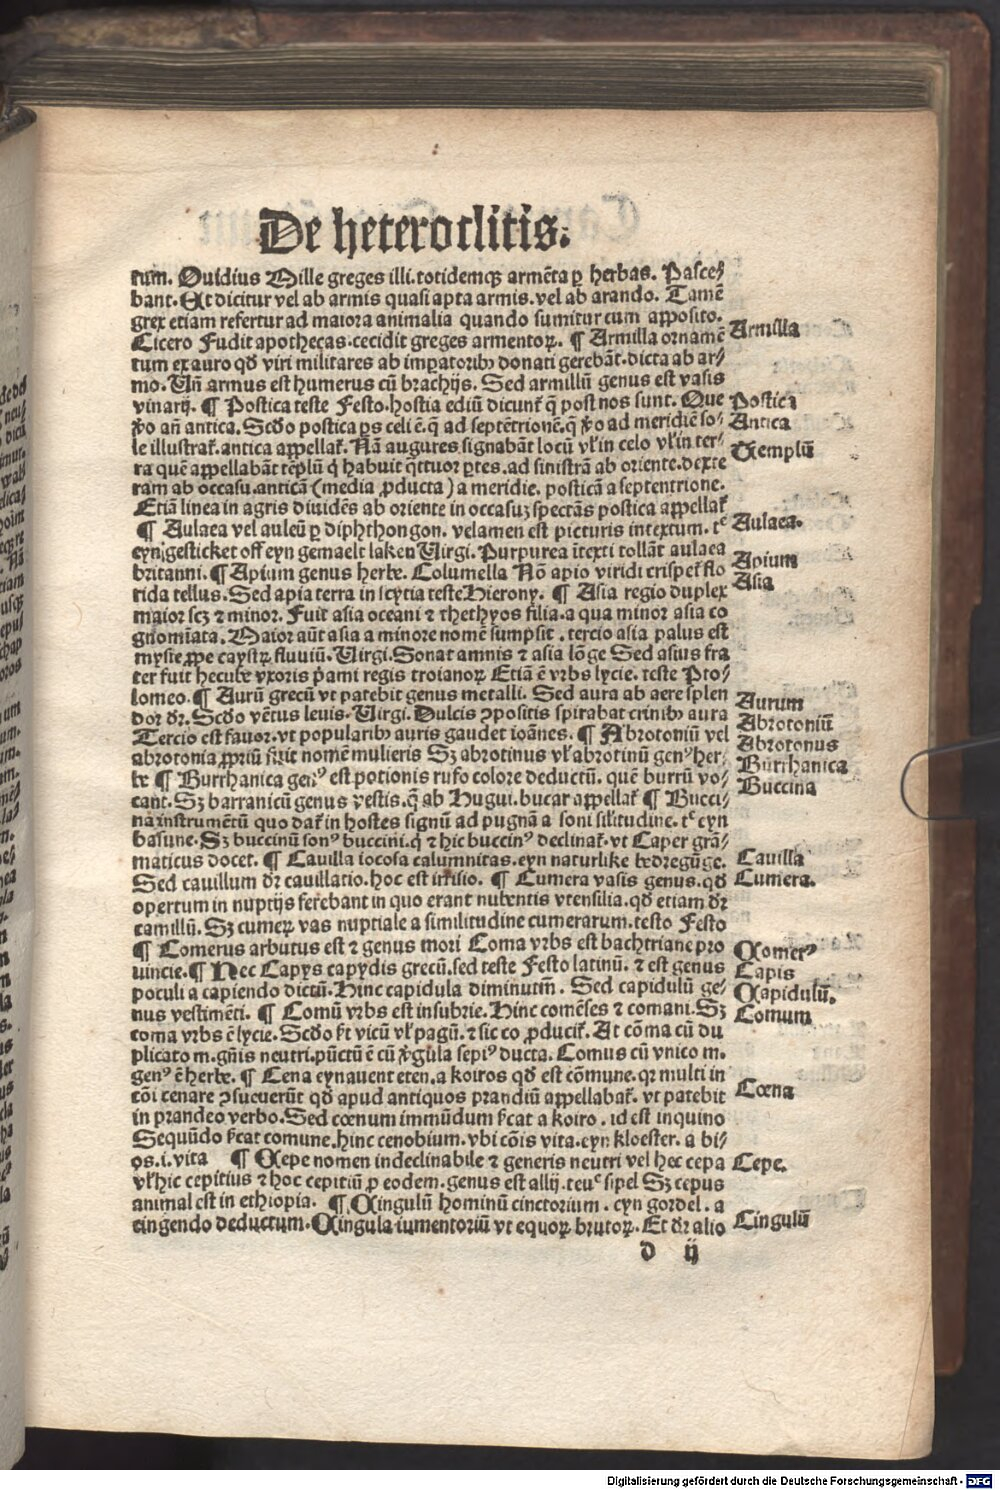 De heteroclitis.
rum. Ouidius Mille greges illi.totidemqꝫ armēta ꝑ herbas. Pasce⸗
bant. Et dicitur vel ab armis quasi apta armis.vel ab arando. Tamē
grex etiam refertur ad maiora animalia quando sumitur cum apposito.
Cicero Fudit apothecas.cecidit greges armentoꝝ. ¶ Armilla ornamē
Armilla
tum ex auro qd̄ viri militares ab imꝑatoribꝫ donati gerebāt.dicta ab ar⸗
mo. Uñ armus est humerus cū brachijs. Sed armillū genus est vasis
vinarij. ¶ Postica teste Festo.hostia ediū dicunt̄ q̄ post nos sunt. Que
Postica
ꝟo añ antica. Scḋo postica ꝑs celi ē.q̄ ad septētrionē.q̄ ꝟo ad meridiē so⸗
Antica
le illustrat̄.antica appellat̄. Nā augures signabāt locū vl̄ in celo vl̄ in ter⸗
Templū
ra quē appellabāt tēplū q̇ habuit q̈ttuor ꝑtes.ad sinistrā ab oriente.dexte
ram ab occasu.anticā (media ꝓducta) a meridie. posticā a septentrione.
Etiā linea in agris diuidēs ab oriente in occasuꝫ spectās postica appellat̄
¶ Aulaea vel auleū ꝑ diphthongon. velamen est picturis intextum. tᶜ
Aulaea.
eyn gesticket off eyn gemaelt laken Uirgi. Purpurea ītexti tollāt aulaea
britanni. ¶ Apium genus herbe. Columella Nō apio viridi crispet̄ flo
Apium
rida tellus. Sed apia terra in scytia teste Hierony. ¶ Asia regio duplex
Asia
maior scꝫ ⁊ minor. Fuit asia oceani ⁊ thethyos filia.a qua minor asia co
gnomīata. Maior aūt asia a minore nomē sumpsit . tercio asia palus est
mysie ꝓpe caystꝝ fluuiū. Uirgi. Sonat amnis ⁊ asia lōge Sed asius fra
ter fuit hecube vxoris p̄ami regis troianoꝝ Etiā ē vrbs lycie. teste Pto⸗
lomeo. ¶ Aurū grecū vt patebit genus metalli. Sed aura ab aere splen
Aurum
dor dr̄. Scḋo vētus leuis. Uirgi. Dulcis ꝯpositis spirabat crinibꝫ aura
Abrotoniū
Tercio est fauor.vt popularibꝫ auris gaudet ioānes. ¶ Abrotoniū vel
Abrotonus
abrotonia ꝓpriū fuit nomē mulieris Sꝫ abrotinus vl̄ abrotinū genꝰ her⸗
be ¶ Burrhanica genꝰ est potionis rufo colore deductū. quē burrū vo⸗
Burrhanica
cant. Sꝫ barranicū genus vestis.q̄ ab Hugui.bucar appellat̄ ¶ Bucci⸗
Buccina
na instrumētū quo dat̄ in hostes signū ad pugnā a soni sil̄itudine. tᶜ eyn
basune. Sꝫ buccinū sonꝰ buccini.q̇ ⁊ hic buccinꝰ declinat̄. vt Caper grā⸗
maticus docet. ¶ Cauilla iocosa calumnitas.eyn naturlike bedregūge.
Cauilla
Sed cauillum dr̄ cauillatio.hoc est irrisio. ¶ Cumera vasis genus.qd̄
Cumera.
opertum in nuptijs ferebant in quo erant nubentis vtensilia.qd̄ etiam dr̄
camillū. Sꝫ cumeꝝ vas nuptiale a similitudine cumerarum.testo Festo
¶ Comerus arbutus est ⁊ genus mori Coma vrbs est bachtriane pro
Comerꝰ
uincie. ¶ Nec Capys capydis grecū.sed teste Festo latinū. ⁊ est genus
Capis
poculi a capiendo dictū. Hinc capidula diminutiū. Sed capidulū ge⸗
Capidulū.
nus vestimēti. ¶ Comū vrbs est insubrie. Hinc comēses ⁊ comani. Sꝫ
Comum
coma vrbs ē lycie. Scḋo vicū vl̄ pagū.⁊ sic co ꝓducit̄. At cōma cū du
plicato m.gn̄is neutri.pūctū ē cū ꝟgula sepiꝰ ducta. Comus cū vnico m.
genꝰ ē herbe. ¶ Cena eyn auent eten.a koiros qd̄ est cōmune.qꝛ multi in
Cœna
cōi cenare ꝯsueuerūt qd̄ apud antiquos prandiū appellabat̄. vt patebit
in prandeo verbo. Sed cœnum immūdum a koiro . id est inquino
Sequūdo comune.hinc cenobium.vbi cōis vita.eyn kloester. a bi⸗
os.i.vita ¶ Cepe nomen indeclinabile ⁊ generis neutri vel hec cepa
Cepe.
vl̄ hic cepitius ⁊ hoc cepitiū ꝓ eodem.genus est allij.teuᶜ sipel Sꝫ cepus
animal est in ethiopia. ¶ Cingulū hominū cinctorium . eyn gordel. a
cingendo deductum. Cingula iumentoriū vt equoꝝ brutoꝝ. Et dr̄ alio
Cingulū
d ij
Digitalisierung gefördert durch die Deutsche Forschungsgemeinschaft - DFG